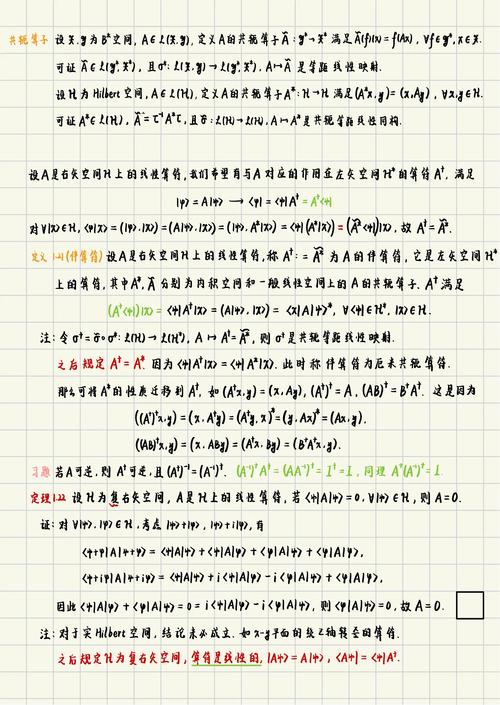 共轭算子 设𝔛,𝒴为B*空间, A∈L(𝔛,𝒴), 定义A的共轭算子Ã: 𝒴*→𝔛* 满足Ã(f)(x)=f(Ax), ∀f∈𝒴*, x∈𝔛.
可证 Ã∈L(𝒴*,𝔛*), 且σ*: L(𝔛,𝒴)→L(𝒴*,𝔛*), A↦Ã 是等距线性映射.
设H为Hilbert空间, A∈L(H), 定义A的共轭算子A*: H→H 满足(A*x,y)=(x,Ay), ∀x,y∈H.
可证A*∈L(H), Ã=τ⁻¹A*τ, 且σ: L(H)→L(H), A↦A*是共轭等距线性同构.
设A是右矢空间H上的线性算符, 我们希望有与A对应的作用在左矢空间H*的算符A†, 满足
|ψ⟩=A|φ⟩ → ⟨ψ|=⟨φ|A†=A†⟨φ|
对∀|x⟩∈H, ⟨ψ|x⟩=(|ψ⟩,|x⟩)=(A|φ⟩,|x⟩)=(|φ⟩,A*|x⟩)=⟨φ|(A*|x⟩)=(Ã*⟨φ|)|x⟩, 故 A†=Ã*.
定义1.21(伴算符) 设A是右矢空间H上的线性算符, 称A†:=Ã* 为A的伴算符, 它是左矢空间H*
上的算符, 其中A*,Ã分别为内积空间和一般线性空间上的A的共轭算子. A†满足
(A†⟨φ|)|x⟩=⟨φ|A†|x⟩=(A|φ⟩,|x⟩)=⟨x|A|φ⟩*, ∀⟨φ|∈H*, |x⟩∈H.
注: 令σ†=σ̃∘σ*: L(H)→L(H*), A↦A†=Ã*, 则σ†是共轭等距线性映射.
之后规定A†=A*. 因为⟨φ|A†|x⟩=⟨φ|A*|x⟩. 此时称伴算符为厄米共轭算符.
那么可将A*的性质迁移到A†, 如(A†x,y)=(x,Ay), (A†)†=A, (AB)†=B†A†. 这是因为
((A†)†x,y)=(x,A†y)=(A†y,x)*=(y,Ax)*=(Ax,y).
((AB)†x,y)=(x,ABy)=(A†x,By)=(B†A†x,y).
习题 若A可逆, 则A†可逆, 且(A†)⁻¹=(A⁻¹)†. (A⁻¹)†A†=(AA⁻¹)†=I†=I, 同理 A†(A⁻¹)†=I.
定理1.22 设H为复右矢空间, A是H上的线性算符, 若⟨ψ|A|ψ⟩=0, ∀|ψ⟩∈H, 则A=0.
证: 对∀|ψ⟩,|φ⟩∈H, 考虑|ψ⟩+|φ⟩, |ψ⟩+i|φ⟩, 有
⟨ψ+φ|A|ψ+φ⟩=⟨ψ|A|ψ⟩+⟨ψ|A|φ⟩+⟨φ|A|ψ⟩+⟨φ|A|φ⟩,
⟨ψ+iφ|A|ψ+iφ⟩=⟨ψ|A|ψ⟩+i⟨ψ|A|φ⟩-i⟨φ|A|ψ⟩+⟨φ|A|φ⟩,
因此⟨ψ|A|φ⟩+⟨φ|A|ψ⟩=0=i⟨ψ|A|φ⟩-i⟨φ|A|ψ⟩, 则⟨φ|A|ψ⟩=0, 故A=0.
注: 对于实Hilbert空间, 结论未必成立. 如x-y平面的绕z轴转动的算符.
之后规定H为复右矢空间, 算符是线性的, |Aψ⟩=A|ψ⟩, ⟨Aψ|=⟨ψ|A†.